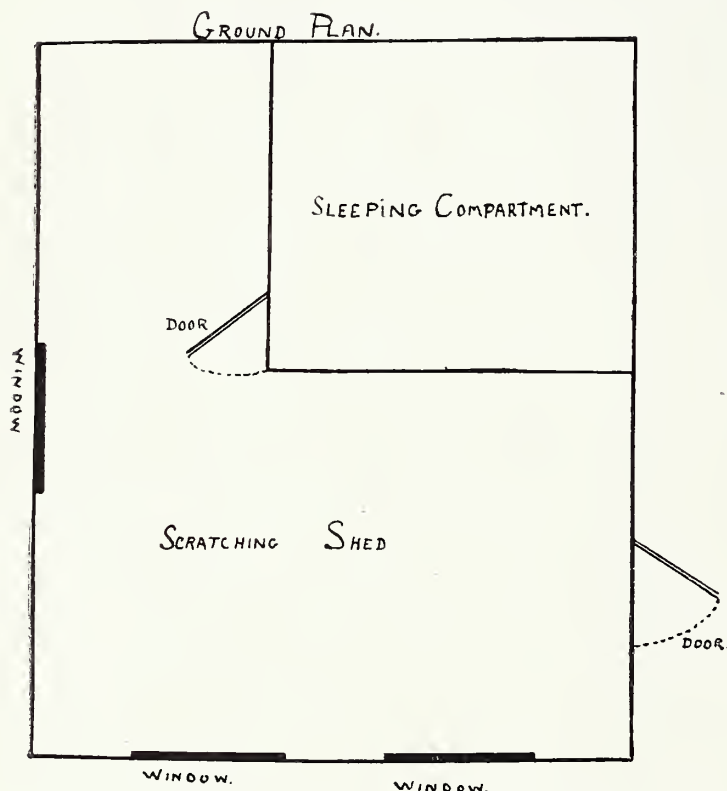 GROUND PLAN.
SLEEPING COMPARTMENT.
DOOR
WINDOW
SCRATCHING SHED
DOOR.
WINDOW.
WINDOW.